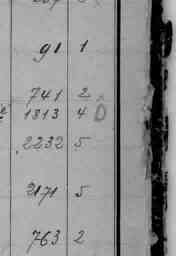 91 1
741 2 x
1813 4 D
2232 5
2171 5
763 2